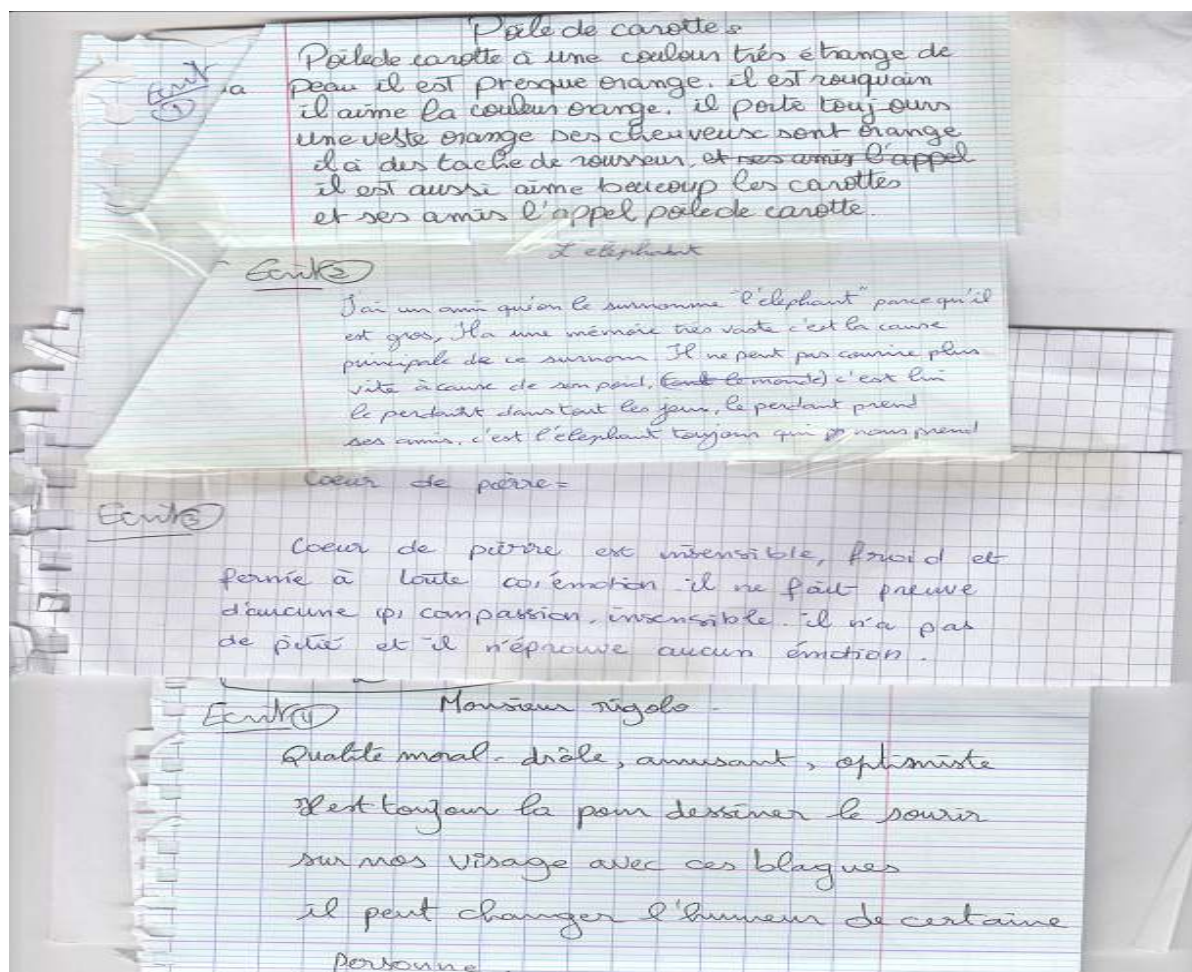 Poile de carotte :
Poilede carotte à une couleur trés étrange de
Ecrit 1
peau il est presque orange. il est rouquain
il aime la couleur orange. il porte toujours
une veste orange ses cheuveux sont orange
il a des tache de rousseur, et ses amis l'appel
il est aussi aime beucoup les carottes
et ses amis l'appel poilede carotte.
L'elephant
Ecrit 2
J'ai un ami qu'on le surnomme "l'éléphant" parce qu'il
est gros, Il a une mémoire très vaste c'est la cause
principale de ce surnom Il ne peut pas courire plus
vite à cause de son poid, (tout le monde) c'est lui
le perdant dans tout les jeux, le perdant prend
ses amis, c'est l'éléphant toujour qui nous prend
Coeur de pierre =
Ecrit 3
Coeur de pierre est insensible, froid et
fermé à toute émotion il ne fait preuve
d'aucune compassion, insensible. il n'a pas
de pitié et il n'éprouve aucun émotion.
Ecrit 4 Monsieur rigolo -
Qualité moral - drôle, amusant, optimiste
Il est toujour la pour dessiner le sourir
sur nos visage avec ces blagues
il peut changer l'humeur de certaine
personne.